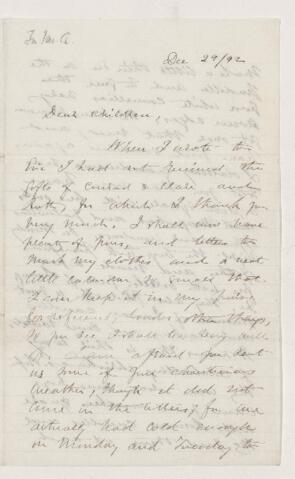 Dec 29/92
Dear Children,
When I wrote to
I had not received the
gifts of Conrad & Clare and
Ruth, for which I thank you
very much. I shall now have
plenty of pens, and letters to
mark my clothes and a neat
little calendar so small that
I can keep it in my
other things,
so you see I shall be very well
off. afraid you sent
us some of your
weather, though it did not
come in the letters, for we
actually had cold enough
on Monday and Tuesday to